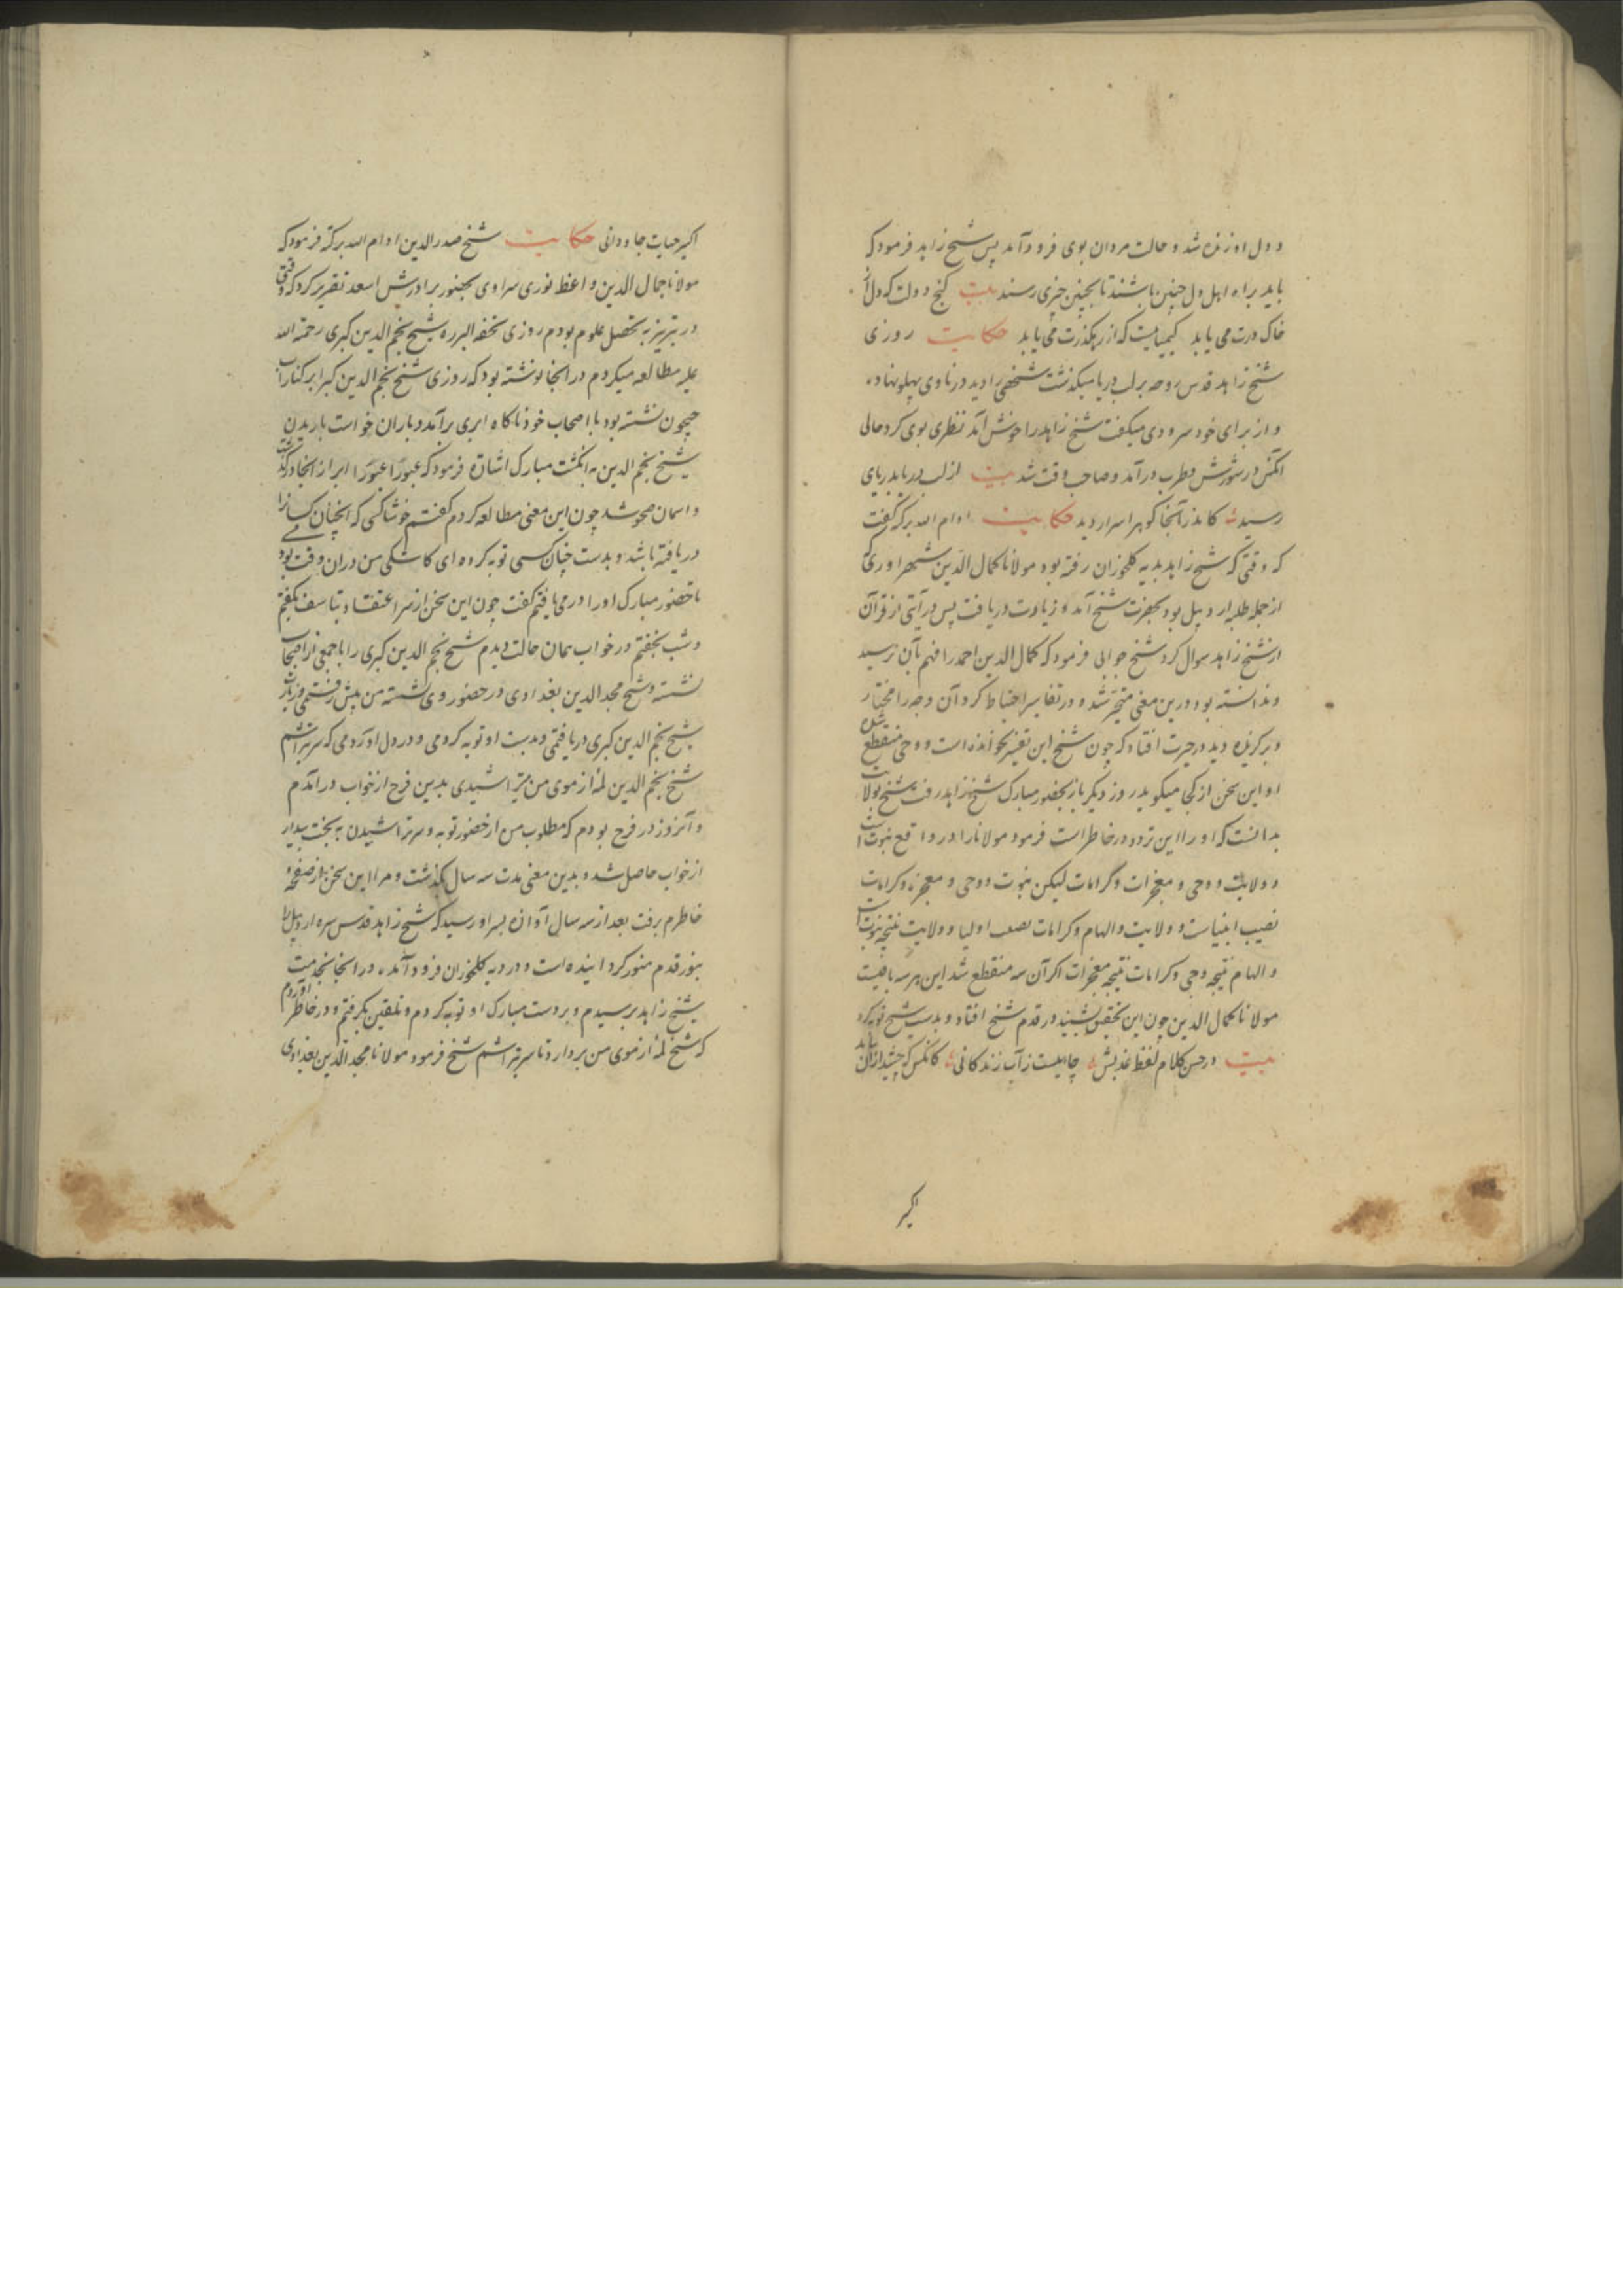 و دل او زنده شد و حالت مردان بوی فرود آمد پس شیخ زاهد فرمود که
باید براه اهل دل چنین باشند تا بچنین چیزی رسند بیت کنج دولت که دل از
خاک درت می یابد کیمیاییست که از رهکذرت می یابد حکایت روزی
شیخ زاهد قدس روحه بر لب دریا میکذشت شخصی را دید در ناوی پهلو نهاده
و از برای خود سرودی میکفت شیخ زاهد را خوش آمد نظری بوی کرد حالی
آنکس در شورش و طرب درآمد و صاحب وقت شد بیت از لب دریا بدریای
رسید کاندر آنجا کوهر اسرار دید حکایت ادام الله برکته کفت
که وقتی که شیخ زاهد بدیه کلخوران رفته بود مولانا کمال الدین شهراوری که
از جمله طلبه اردبیل بود بحضرت شیخ آمد و زیادت دریافت پس در آیتی از قرآن
از شیخ زاهد سوال کرد شیخ جوابی فرمود که کمال الدین احمد را فهم بآن نرسید
و ندانسته بود درین معنی متحیر شد و در تفاسیر احتیاط کرد آن وجه را مختار
و برکزیده دید در حیرت افتاد که چون شیخ این تفسیر نخوانده است و وحی منقطع شده
او این سخن از کجا میکوید روز دیکر باز بحضور مبارک شیخ زاهد رفت شیخ بولایت
بدانست که او را این تردد در خاطر است فرمود مولانا را در واقع نبوت است
و ولایت و وحی و معجزات و کرامات لیکن نبوت و وحی و معجزه و کرامات
نصیب انبیاست و ولایت و الهام و کرامات نصیب اولیا و ولایت نتیجه نبوت است
و الهام نتیجه وحی و کرامات نتیجه معجزات اکر آن سه منقطع شد این هر سه باقیست
مولانا کمال الدین چون این تحقیق بشنید در قدم شیخ افتاد و بدست شیخ توبه کرد
بیت در حسن کلام لفظ عذبش جاییست ز آب زندکانی کانکس که چشید از آن یابد
اکیر
اکیر حیات جاودانی حکایت شیخ صدرالدین ادام الله برکته فرمود که
مولانا جمال الدین واعظ نوری سراوی بحضور برادرش اسعد تقریر کرد که وقتی
در تبریز به تحصیل علوم بودم روزی تحفه البرره شیخ نجم الدین کبری رحمة الله
علیه مطالعه میکردم در انجا نوشته بود که روزی شیخ نجم الدین کبرا بر کنار آب
جیحون نشسته بود با اصحاب خود ناکاه ابری برآمد و باران خواست باریدن
شیخ نجم الدین به انکشت مبارک اشارة فرمود که عبورا عبورا ابر از انجا درکذشت
و اسمان صحو شد چون این معنی مطالعه کردم کفتم خوشا کسی که انچنان کسی را
دریافته باشد و بدست چنان کسی توبه کرده ای کاشکی من دران وقت بودم
تا حضور مبارک او را درمی یافتم کفت چون این سخن از سر اعتقاد بتاسف بکفتم
و شب بخفتم در خواب همان حالت دیدم شیخ نجم الدین کبری را با جمعی از اصحاب
نشسته و شیخ مجد الدین بغدادی در حضور وی نشسته من پیش رفتمی و زیارت
شیخ نجم الدین کبری دریافتمی و بدست او توبه کردمی و در دل آوردمی که سر بتراشم
شیخ نجم الدین لمه از موی من بتراشیدی بدین فرح از خواب درآمدم
و آنروز در فرح بودم که مطلوب من از حضور توبه و سر تراشیدن به بخت بیدار
از خواب حاصل شد و بدین معنی مدت سه سال بکذشت و مرا این سخن از صفحه
خاطرم برفت بعد از سه سال آوازه بسراو رسید که شیخ زاهد قدس سره اردبیل را
بنور قدم منور کردانیده است و در دیه کلخوران فرود آمده در انجا بخدمت
شیخ زاهد برسیدم و بر دست مبارک او توبه کردم و تلقین بکرفتم و در خاطر آوردم
که شیخ لمه از موی من بردارد تا سر بتراشم شیخ فرمود مولانا مجد الدین بغدادی